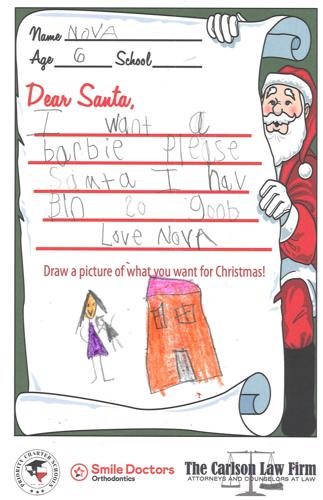 Name NOVA
Age 6 School
Dear Santa,
I want a
barbie please
Santa I hav
BIN so goob
Love NOVA
Draw a picture of what you want for Christmas!
PRIORITY CHARTER SCHOOLS
Smile Doctors
Orthodontics
The Carlson Law Firm
ATTORNEYS AND COUNSELORS AT LAW